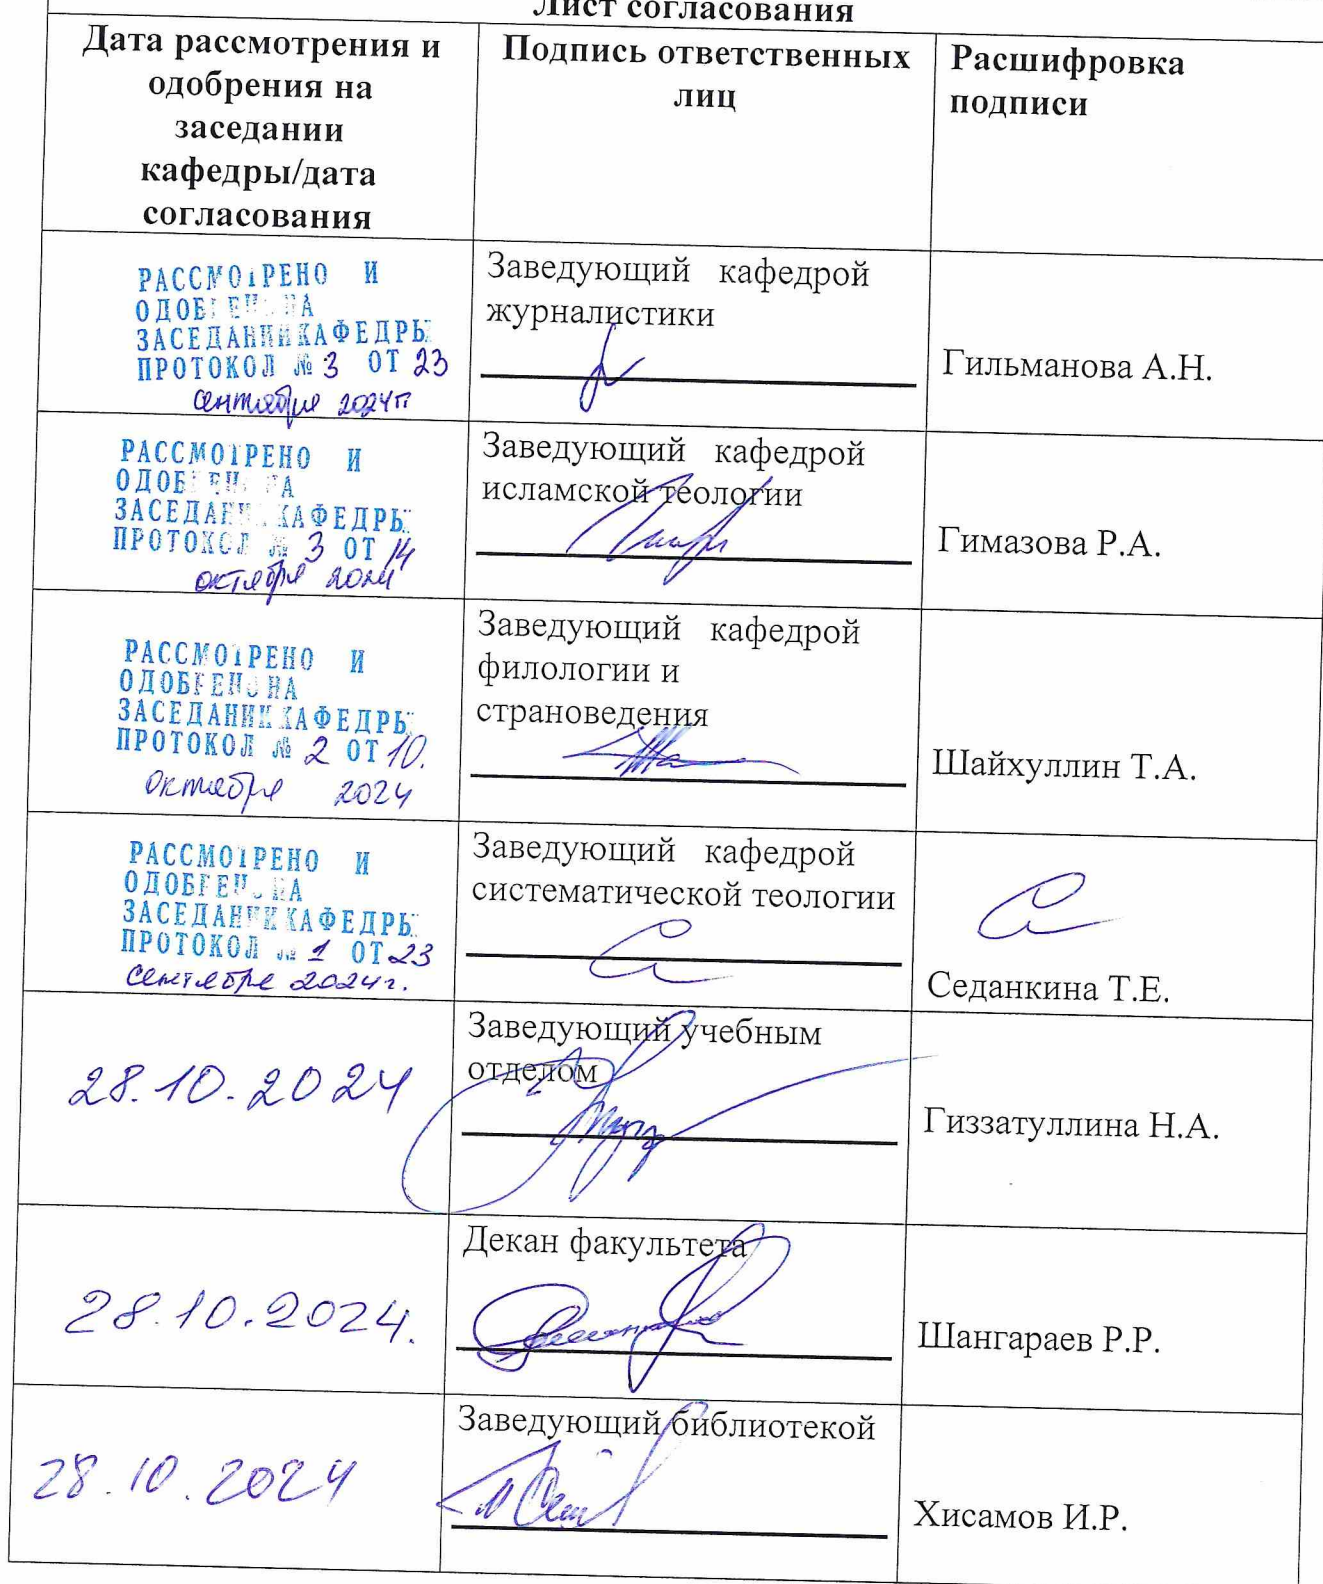 Лист согласования
Дата рассмотрения и
одобрения на
заседании
кафедры/дата
согласования
Подпись ответственных
лиц
Расшифровка
подписи
РАССМОТРЕНО И
ОДОБРЕНО НА
ЗАСЕДАНИИ КАФЕДРЫ
ПРОТОКОЛ № 3 ОТ 23
сентября 2024 г.
Заведующий кафедрой
журналистики
Гильманова А.Н.
РАССМОТРЕНО И
ОДОБРЕНО НА
ЗАСЕДАНИИ КАФЕДРЫ
ПРОТОКОЛ № 3 ОТ 14
октября 2024
Заведующий кафедрой
исламской теологии
Гимазова Р.А.
РАССМОТРЕНО И
ОДОБРЕНО НА
ЗАСЕДАНИИ КАФЕДРЫ
ПРОТОКОЛ № 2 ОТ 10.
октября 2024
Заведующий кафедрой
филологии и
страноведения
Шайхуллин Т.А.
РАССМОТРЕНО И
ОДОБРЕНО НА
ЗАСЕДАНИИ КАФЕДРЫ
ПРОТОКОЛ № 1 ОТ 23
сентября 2024 г.
Заведующий кафедрой
систематической теологии
Седанкина Т.Е.
28.10.2024
Заведующий учебным
отделом
Гиззатуллина Н.А.
28.10.2024.
Декан факультета
Шангараев Р.Р.
28.10.2024
Заведующий библиотекой
Хисамов И.Р.